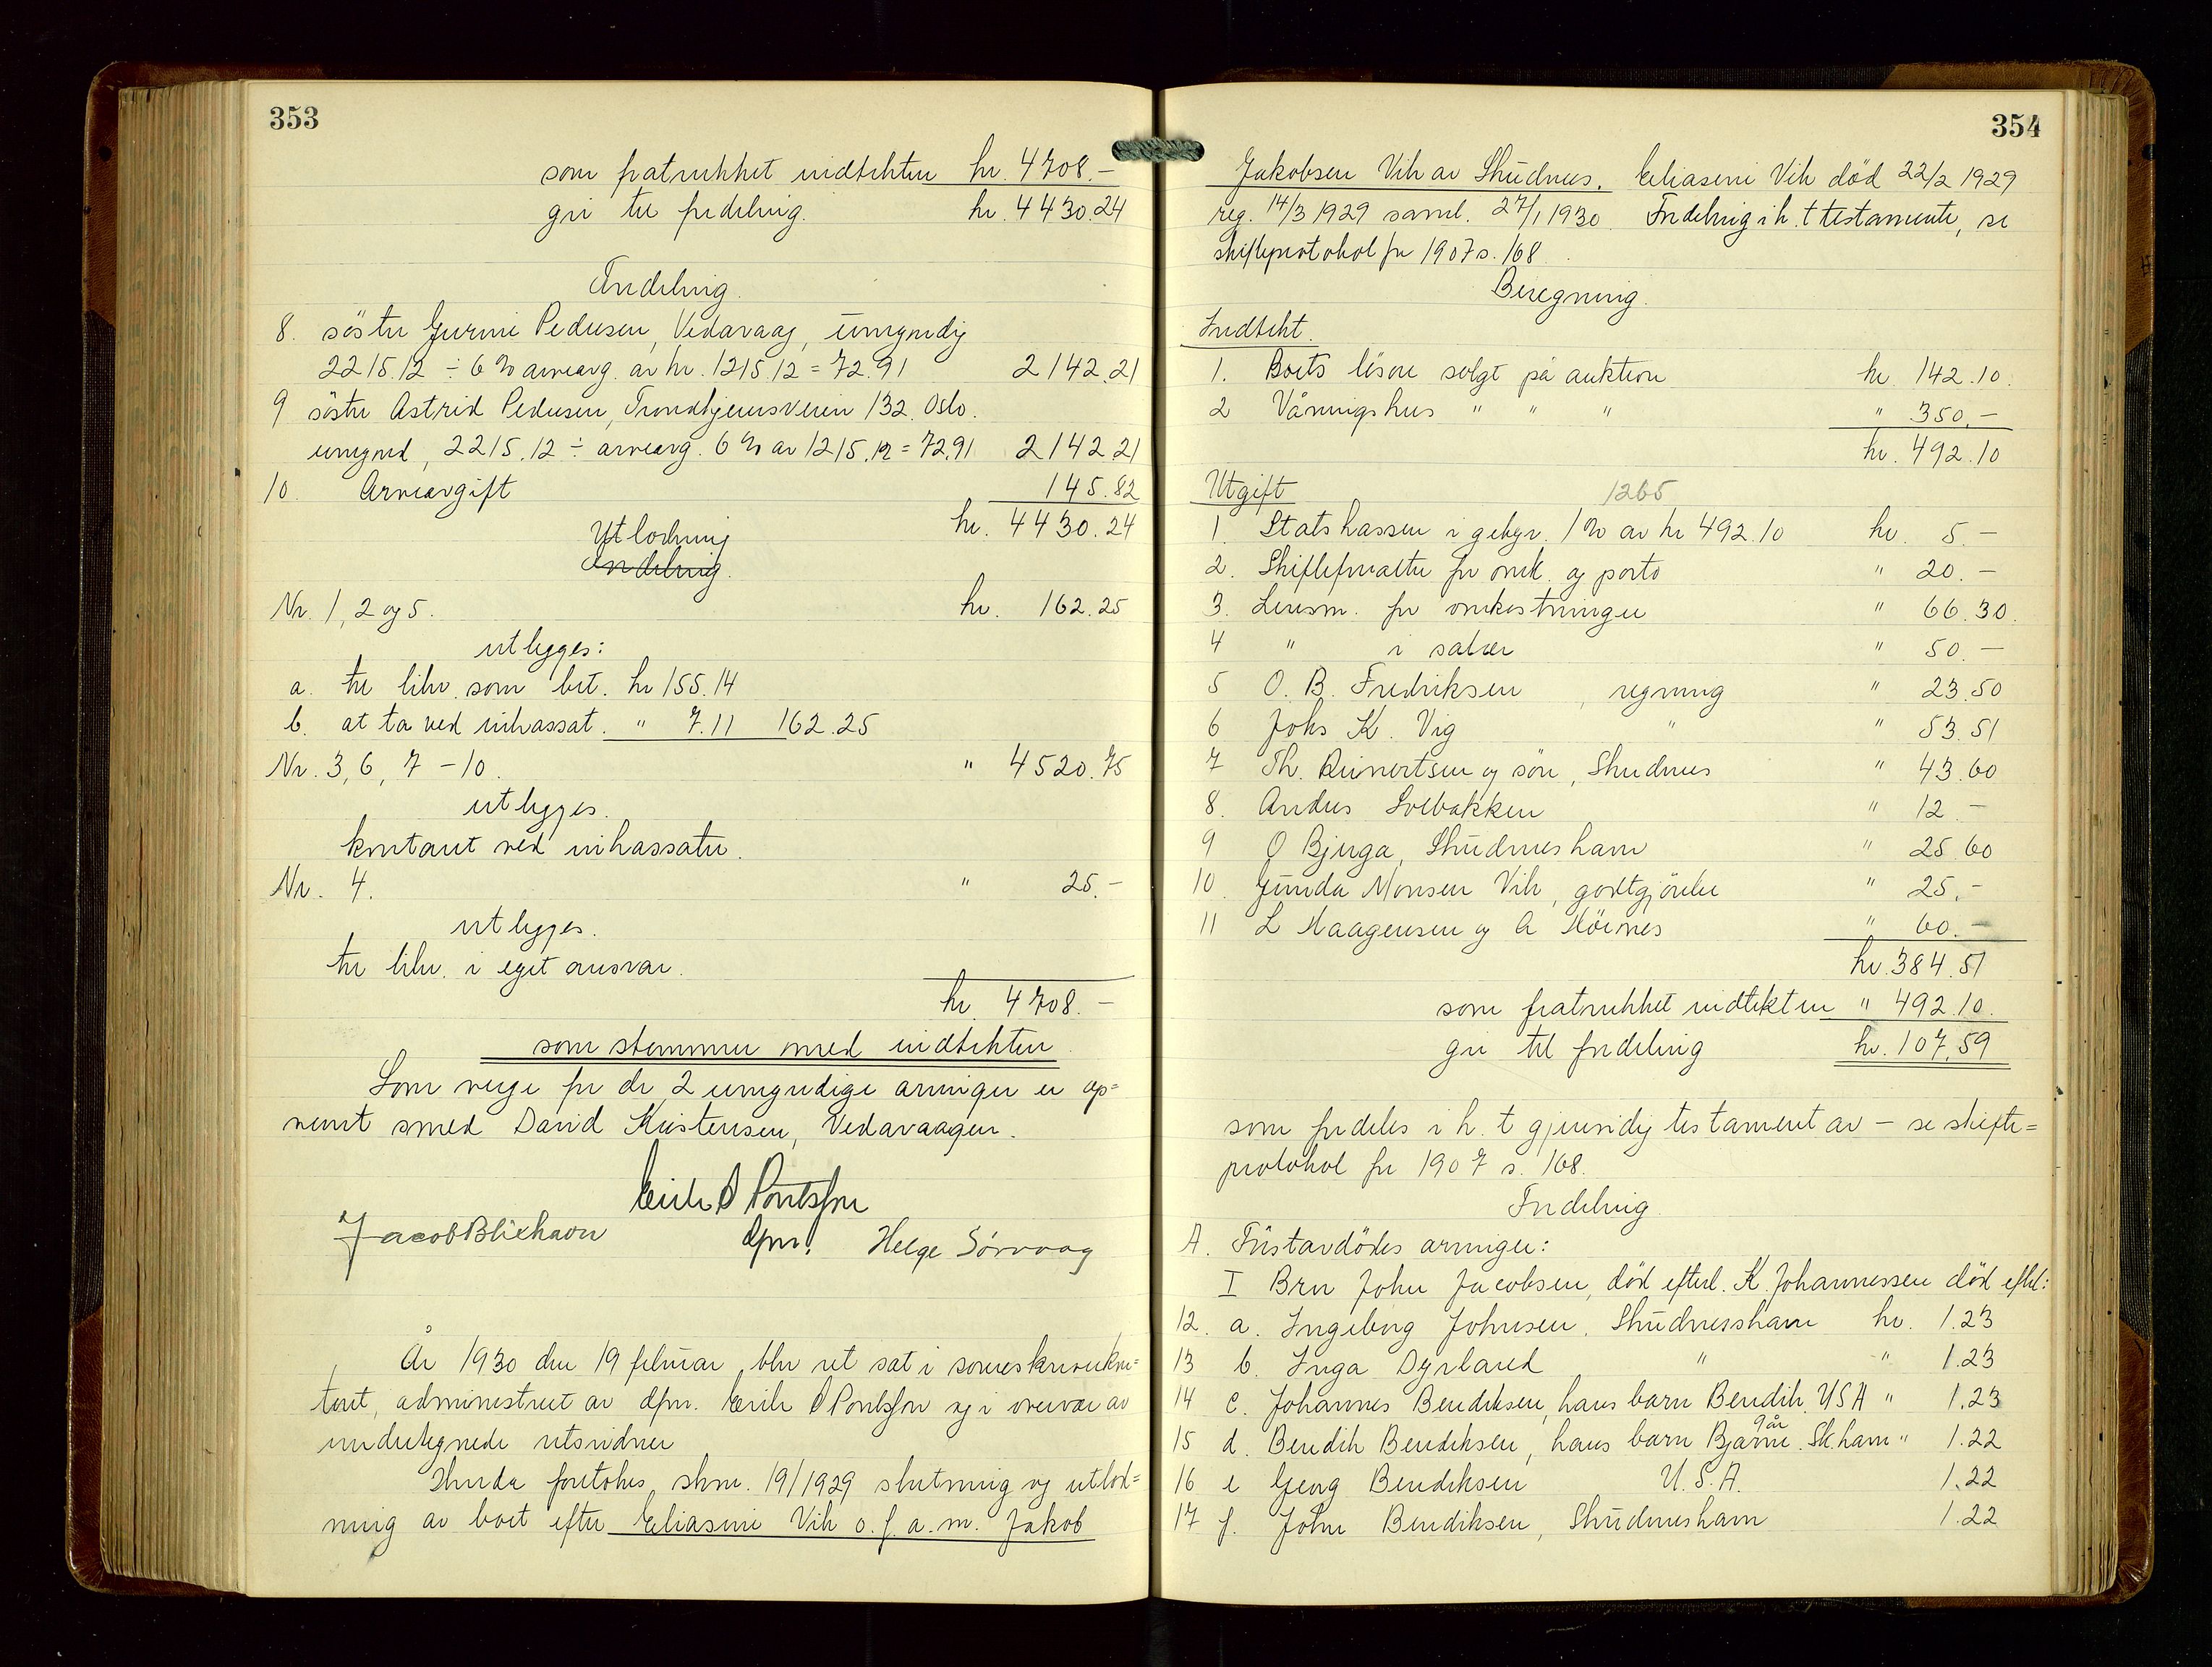 353
som fratrukket indtekten kr. 4708.-
gir til fordeling. kr. 4430.24
Fordeling.
8. söster Gurine Pedersen, Vedavaag, umyndig
2215.12 ÷ 6 % arveavg. av kr. 1215.12 = 72.91 2142.21
9 söster Astrid Pedersen, Trondhjemsveien 132. Oslo.
umynd, 2215.12 ÷ arveavg. 6 % av 1215.12 = 72.91 2142.21
10. Arveavgift 145.82
kr. 4430.24
Utlodning
Fordeling.
Nr. 1, 2 og 5. kr. 162.25
utlegges:
a. til likv. som bet. kr 155.14
b. at ta ved inkassat. " 7.11 162.25
Nr. 3, 6, 7 - 10. " 4520.75
utlegges.
kontant ved inkassator.
Nr. 4. " 25.-
utlegges.
til likv. i eget ansvar.
kr 4708.-
som stemmer med indtekten.
Som verge for de 2 umyndige arvinger er op=
nevnt smed David Kristensen, Vedavaagen.
Eirik
Jacob Blikhavn dfm. Helge Sørvaag
År 1930 den 19 februar blev ret sat i sorenskriverkon=
toret, administreret av dfm. Eirik og i overvær av
undertegnede retsvidner
Herunder foretokes skm. 19/1929 slutning og utlod=
ning av boet efter Eliasine Vik o. f. a. m. Jakob
354
Jakobsen Vik av Skudnes. Eliasine Vik död 22/2 1929
reg. 14/3 1929 saml. 27/1 1930. Fordeling i h. t testamente, se
skifteprotokol for 1907 s. 168.
Beregning.
Indtekt.
1. Boets lösöre solgt på auktion kr. 142.10.
2 Våningshus " " " " 350.-
kr. 492.10
Utgift 1265
1. Statskassen i gebyr. 1 % av kr 492.10 kr. 5.-
2. Skifteforvalter for omk. og porto " 20.-
3. Lensm. for omkostninger " 66.30.
4 " i salær " 50.-
5 O. B. Fredriksen, regning " 23.50
6 Johs K. Vig " " 53.51
7 Th. Reinertsen og sön, Skudnes " 43.60
8. Anders Solbakken " 12.-
9 O Bjerga, Skudneshavn " 25.60
10. Gunda Monsen Vik, godtgjörelse " 25.-
11 L Haagensen og A Höines " 60.-
kr. 384.51
som fratrukket indtekten " 492.10.
gir til fordeling kr. 107.59
som fordeles i h. t gjensidig testament av - se skifte=
protokol for 1907 s. 168.
Fordeling
A. Förstavdödes arvinger:
I Bror John Jacobsen, död efterl. K. Johannessen död efterl:
12. a. Ingeborg Johnsen, Skudneshavn kr. 1.23
13 b. Inga Dyrland " " 1.23
14 c. Johannes Bendiksen, hans barn Bendik. USA " 1.23
15 d. Bendik Bendiksen, hans barn Bjarne 9 år. Sk.havn " 1.22
16 e Georg Bendiksen U. S. A. 1.22
17 f. John Bendiksen, Skudneshavn 1.22